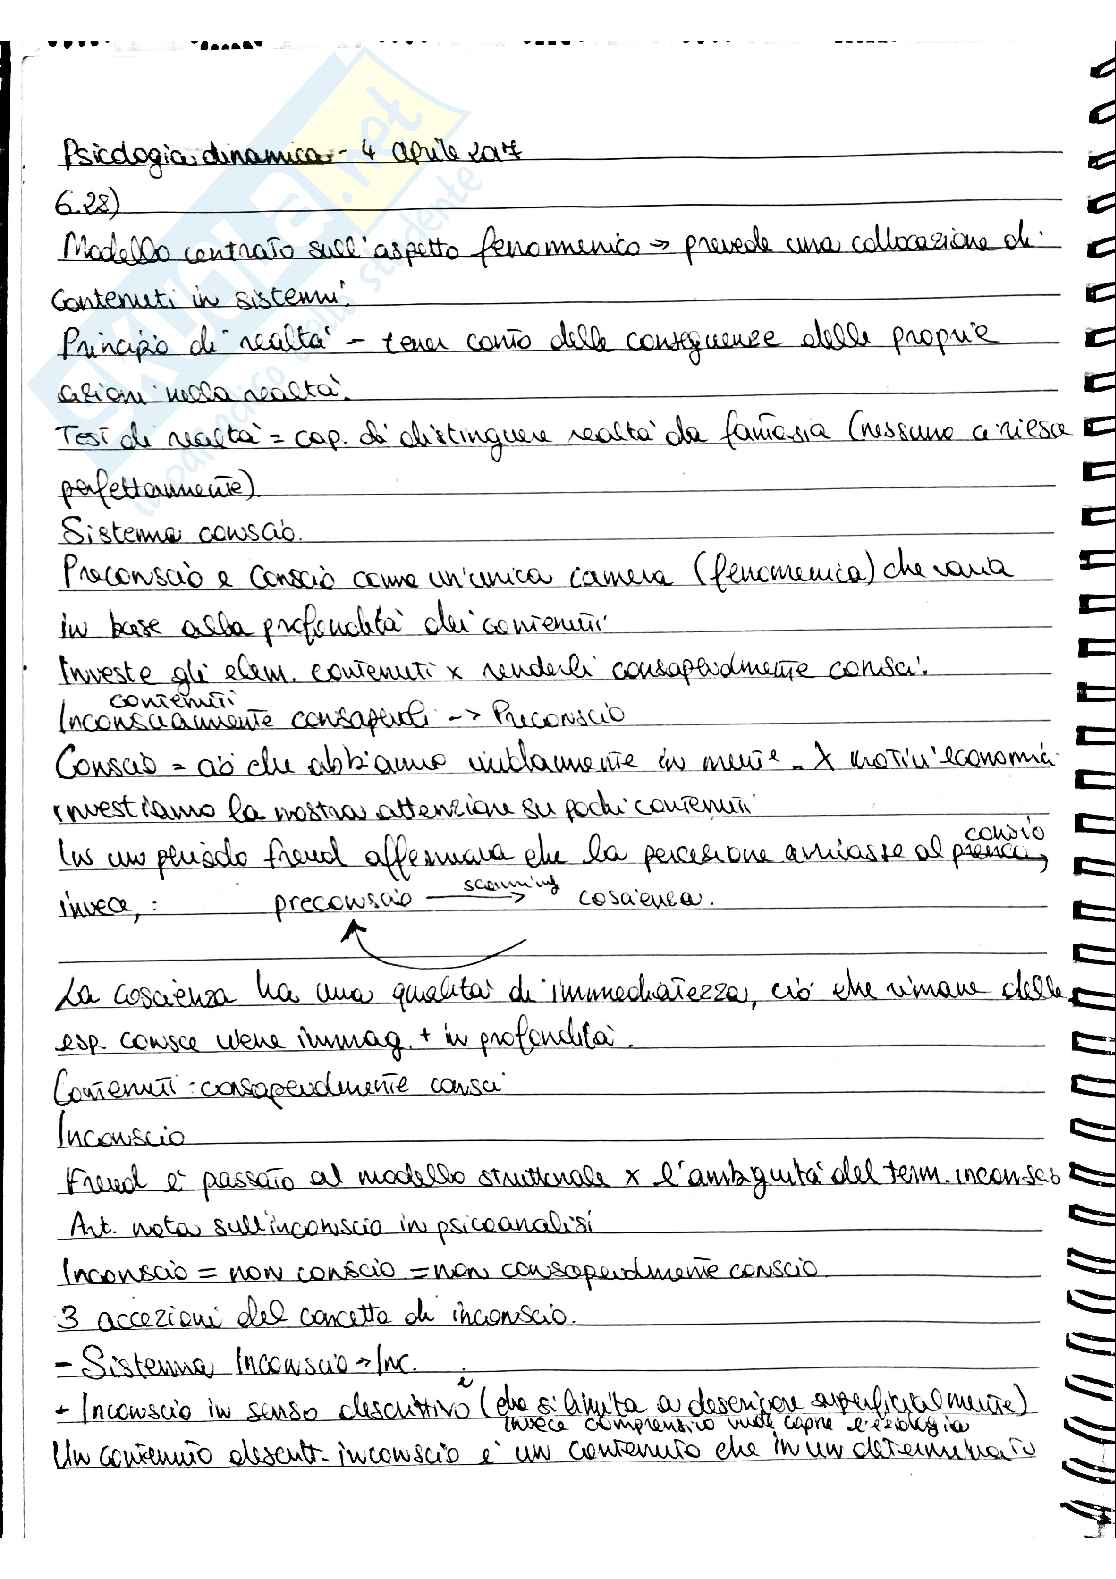 Psicologia dinamica - 4 aprile 2017
6.28)
Modello centrato sull'aspetto fenomenico → prevede una collocazione di
contenuti in sistemi.
Principio di realtà - tener conto delle conseguenze delle proprie
azioni nella realtà.
Test di realtà = cap. di distinguere realtà da fantasia (nessuno ci riesce
perfettamente)
Sistema conscio.
Preconscio e conscio come un'unica camera (fenomenica) che varia
in base alla profondità dei contenuti
Investe gli elem. contenuti x renderli consapevolmente consci.
contenuti
Inconsciamente consapevoli -> Preconscio
Conscio = ciò che abbiamo vividamente in mente - X motivi economici
investiamo la nostra attenzione su pochi contenuti
conscio
In un periodo Freud affermava che la percezione arrivasse al,
invece,: preconscio scanning → coscienza.
La coscienza ha una qualità di immediatezza, ciò che rimane delle
esp. consce viene immag. + in profondità.
Contenuti: consapevolmente consci
Inconscio
Freud è passato al modello strutturale x l'ambiguità del term. inconscio
Art. nota sull'inconscio in psicoanalisi
Inconscio = non conscio = non consapevolmente conscio
3 accezioni del concetto di inconscio.
- Sistema Inconscio → Inc.
- Inconscio in senso descrittivo (che si limita a descrivere superficialmente)
invece comprensivo vuole capire l'eziologia
Un contenuto descritt. inconscio è un contenuto che in un determinato
SKUOLA.net